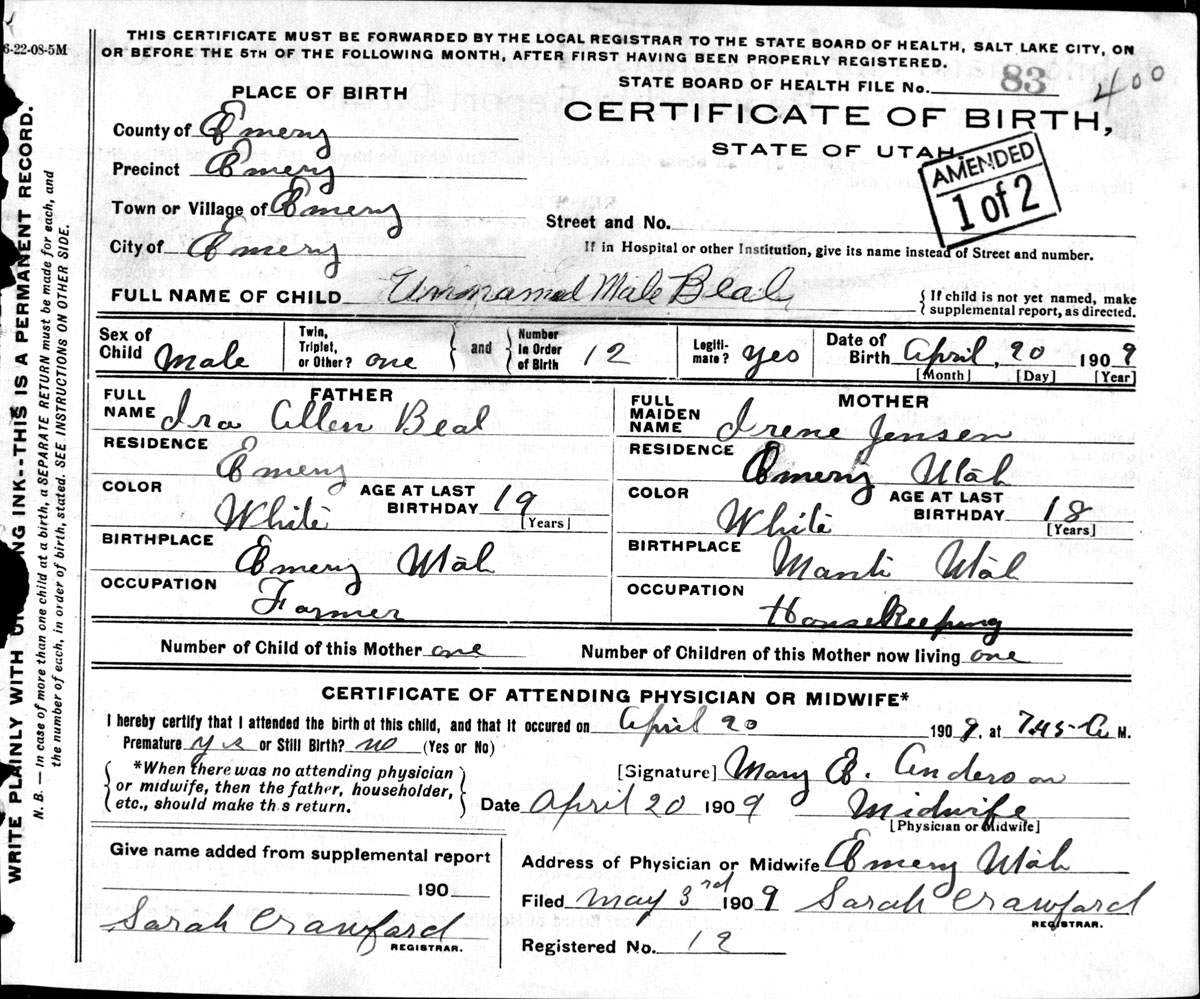 6-22-08-5M
THIS CERTIFICATE MUST BE FORWARDED BY THE LOCAL REGISTRAR TO THE STATE BOARD OF HEALTH, SALT LAKE CITY, ON
OR BEFORE THE 5TH OF THE FOLLOWING MONTH, AFTER FIRST HAVING BEEN PROPERLY REGISTERED.
STATE BOARD OF HEALTH FILE No. 83 400
PLACE OF BIRTH
CERTIFICATE OF BIRTH,
STATE OF UTAH
AMENDED
1 of 2
County of Emery
Precinct Emery
Town or Village of Emery
Street and No.
City of Emery
If in Hospital or other Institution, give its name instead of Street and number.
FULL NAME OF CHILD Unnamed Male Beal
{ If child is not yet named, make
supplemental report, as directed.
Sex of Child Male
Twin, Triplet, or Other? one } and { Number in Order of Birth 12
Legitimate? yes
Date of Birth April, 20 1909
[Month] [Day] [Year]
FATHER
FULL NAME Ira Allen Beal
RESIDENCE Emery
COLOR White
AGE AT LAST BIRTHDAY 19 [Years]
BIRTHPLACE Emery Utah
OCCUPATION Farmer
MOTHER
FULL MAIDEN NAME Irene Jensen
RESIDENCE Emery Utah
COLOR White
AGE AT LAST BIRTHDAY 18 [Years]
BIRTHPLACE Manti Utah
OCCUPATION HouseKeeping
Number of Child of this Mother one
Number of Children of this Mother now living one
CERTIFICATE OF ATTENDING PHYSICIAN OR MIDWIFE*
I hereby certify that I attended the birth of this child, and that it occured on April 20 1909. at 7.45-A M.
Premature yes or Still Birth? no (Yes or No)
{ *When there was no attending physician
or midwife, then the father, householder,
etc., should make this return. }
[Signature] Mary E. Anderson
Date April 20 1909 Midwife
[Physician or Midwife]
Give name added from supplemental report
190
Sarah Crawford
REGISTRAR.
Address of Physician or Midwife Emery Utah
Filed May 3rd 1909 Sarah Crawford
REGISTRAR.
Registered No. 12
WRITE PLAINLY WITH INK--THIS IS A PERMANENT RECORD.
N. B. — In case of more than one child at a birth, a SEPARATE RETURN must be made for each, and
the number of each, in order of birth, stated. SEE INSTRUCTIONS ON OTHER SIDE.